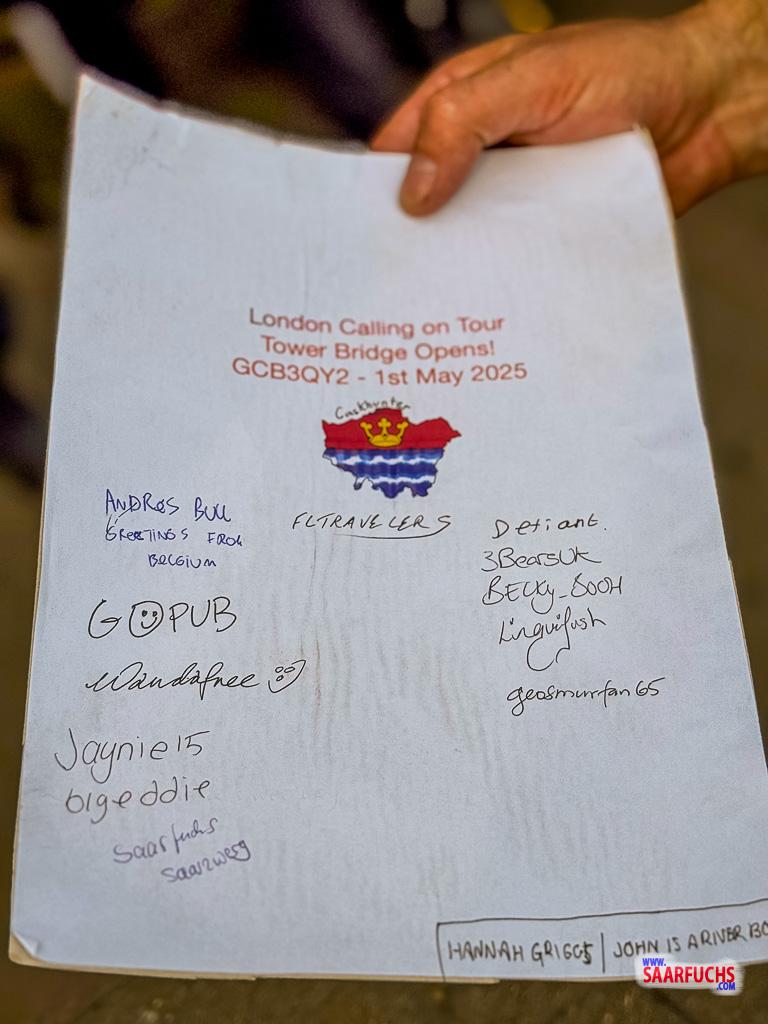 London Calling on Tour
Tower Bridge Opens!
GCB3QY2 - 1st May 2025
Cachhunter
ANDROS BULL
GREETINGS FROM
BELGIUM
FLTRAVELERS
Defiant.
3BearsUK
BECKY_BOOH
Linguifush
geosmurfan65
GOPUB
Wandafree
Jaynie15
bigeddie
Saarfuchs
Saarzwerg
HANNAH GRIGGS | JOHN IS A RIVER BO
WWW.
SAARFUCHS
.COM